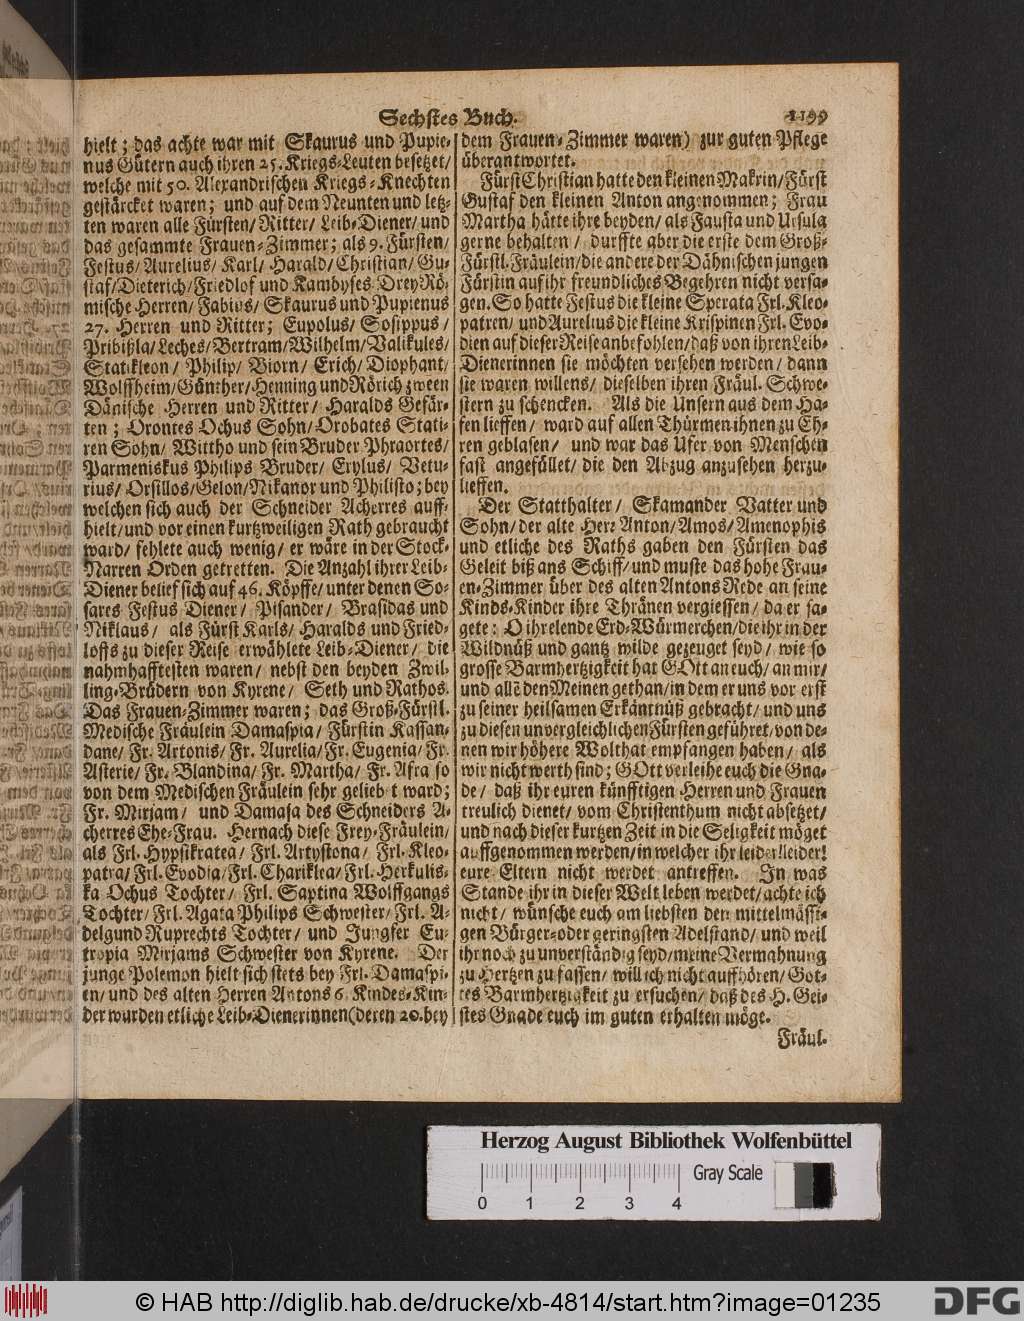 Sechstes Buch. 1199
hielt; das achte war mit Skaurus und Pupie-
nus Gütern auch ihren 25. Kriegs-Leuten besetzet/
welche mit 50. Alexandrischen Kriegs-Knechten
gestärcket waren; und auf dem Neunten und letz-
ten waren alle Fürsten/ Ritter/ Leib-Diener/ und
das gesammte Frauen-Zimmer; als 9. Fürsten/
Festus/ Aurelius/ Karl/ Harald/ Christian/ Gu-
staf/ Dieterich/ Friedlof und Kambyses Drey Rö-
mische Herren/ Fabius/ Skaurus und Pupienus
27. Herren und Ritter; Eupolus/ Sosippus/
Pribißla/ Leches/ Bertram/ Wilhelm/ Valikules/
Statikleon/ Philip/ Biorn/ Erich/ Diophant/
Wolffheim/ Günther/ Henning und Rörich zween
Dänische Herren und Ritter/ Haralds Gefär-
ten; Orontes Ochus Sohn/ Orobates Stati-
ren Sohn/ Wittho und sein Bruder Phraortes/
Parmeniskus Philips Bruder/ Erylus/ Vetu-
rius/ Orsillos/ Gelon/ Nikanor und Philisto; bey
welchen sich auch der Schneider Acherres auff-
hielt/ und vor einen kurtzweiligen Rath gebraucht
ward/ fehlete auch wenig/ er wäre in der Stock-
Narren Orden getretten. Die Anzahl ihrer Leib-
Diener belief sich auf 46. Köpffe/ unter denen So-
sares Festus Diener/ Pisander/ Brasidas und
Niklaus/ als Fürst Karls/ Haralds und Fried-
loffs zu dieser Reise erwählete Leib-Diener/ die
nahmhafftesten waren/ nebst den beyden Zwil-
ling-Brüdern von Kyrene/ Seth und Rathos.
Das Frauen-Zimmer waren; das Groß-Fürstl.
Medische Fräulein Damaspia/ Fürstin Kassan-
dane/ Fr. Artonis/ Fr. Aurelia/ Fr. Eugenia/ Fr.
Asterie/ Fr. Blandina/ Fr. Martha/ Fr. Afra so
von dem Medischen Fräulein sehr geliebt ward;
Fr. Mirjam/ und Damasa des Schneiders A-
cherres Ehe-Frau. Hernach diese Frey-Fräulein/
als Frl. Hypsikratea/ Frl. Artystona/ Frl. Kleo-
patra/ Frl. Evodia/ Frl. Chariklea/ Frl. Herkulis-
ka Ochus Tochter/ Frl. Saptina Wolffgangs
Tochter/ Frl. Agata Philips Schwester/ Frl. A-
delgund Ruprechts Tochter/ und Jungfer Eu-
tropia Mirjams Schwester von Kyrene. Der
junge Polemon hielt sich stets bey Frl. Damaspi-
en/ und des alten Herren Antons 6. Kindes-Kin-
der wurden etliche Leib-Dienerinnen (deren 20. bey
dem Frauen-Zimmer waren) zur guten Pflege
überantwortet.
Fürst Christian hatte den kleinen Makrin/ Fürst
Gustaf den kleinen Anton angenommen; Frau
Martha hätte ihre beyden/ als Fausta und Ursula
gerne behalten/ durffte aber die erste dem Groß-
Fürstl. Fräulein/ die andere der Dähnischen jungen
Fürstin auf ihr freundliches Begehren nicht versa-
gen. So hatte Festus die kleine Sperata Frl. Kleo-
patren/ und Aurelius die kleine Krispinen Frl. Evo-
dien auf dieser Reise anbefohlen/ daß von ihren Leib-
Dienerinnen sie möchten versehen werden/ dann
sie waren willens/ dieselben ihren Fräul. Schwe-
stern zu schencken. Als die Unsern aus dem Ha-
fen lieffen/ ward auf allen Thürmen ihnen zu Eh-
ren geblasen/ und war das Ufer von Menschen
fast angefüllet/ die den Abzug anzusehen herzu-
lieffen.
Der Statthalter/ Skamander Vatter und
Sohn/ der alte Herr Anton/ Amos/ Amenophis
und etliche des Raths gaben den Fürsten das
Geleit biß ans Schiff/ und muste das hohe Frau-
en-Zimmer über des alten Antons Rede an seine
Kinds-Kinder ihre Thränen vergiessen/ da er sa-
gete: O ihr elende Erd-Würmerchen/ die ihr in der
Wildnüß und gantz wilde gezeuget seyd/ wie so
grosse Barmhertzigkeit hat GOtt an euch/ an mir/
und allē den Meinen gethan/ in dem er uns vor erst
zu seiner heilsamen Erkäntnüß gebracht/ und uns
zu diesen unvergleichlichen Fürsten geführet/ von de-
nen wir höhere Wolthat empfangen haben/ als
wir nicht werth sind; GOtt verleihe euch die Gna-
de/ daß ihr euren künfftigen Herren und Frauen
treulich dienet/ vom Christenthum nicht absetzet/
und nach dieser kurtzen Zeit in die Seligkeit möget
auffgenommen werden/ in welcher ihr leider! leider!
eure Eltern nicht werdet antreffen. In was
Stande ihr in dieser Welt leben werdet/ achte ich
nicht/ wünsche euch am liebsten den mittelmässi-
gen Bürger- oder geringsten Adelstand/ und weil
ihr noch zu unverständig seyd/ meine Vermahnung
zu Hertzen zu fassen/ will ich nicht auffhören/ Got-
tes Barmhertzigkeit zu ersuchen/ daß des H. Gei-
stes Gnade euch im guten erhalten möge.
Fräul.
Herzog August Bibliothek Wolfenbüttel
Gray Scale
0 1 2 3 4
© HAB http://diglib.hab.de/drucke/xb-4814/start.htm?image=01235
DFG